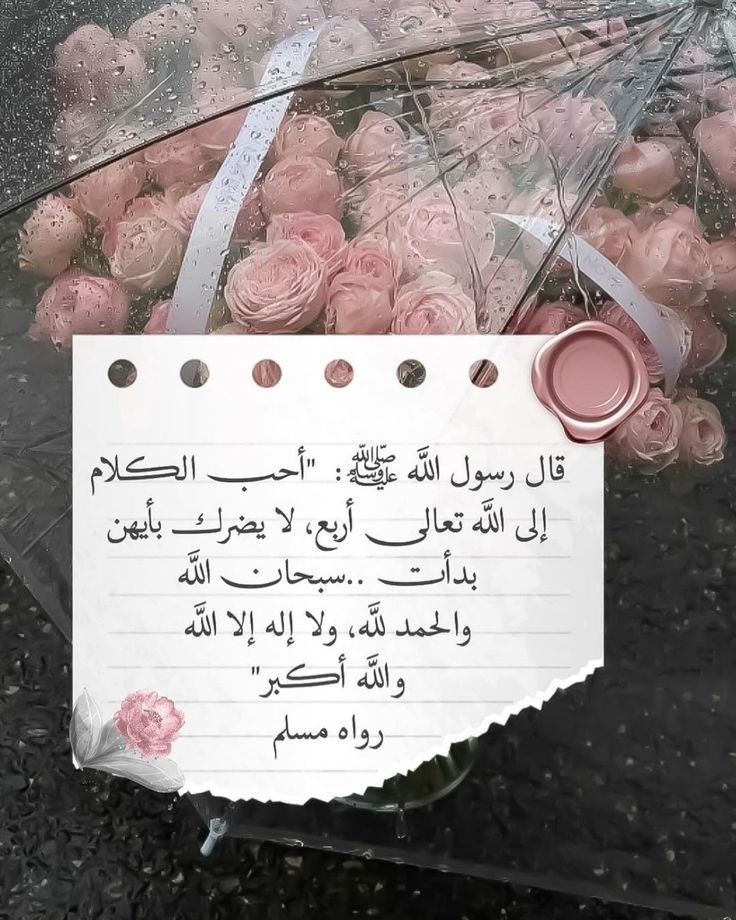 قال رسول اللَّه ﷺ: "أحب الكلام
إلى اللَّه تعالى أربع، لا يضرك بأيهن
بدأت ..سبحان اللَّه
والحمد للَّه، ولا إله إلا اللَّه
واللَّه أكبر"
رواه مسلم